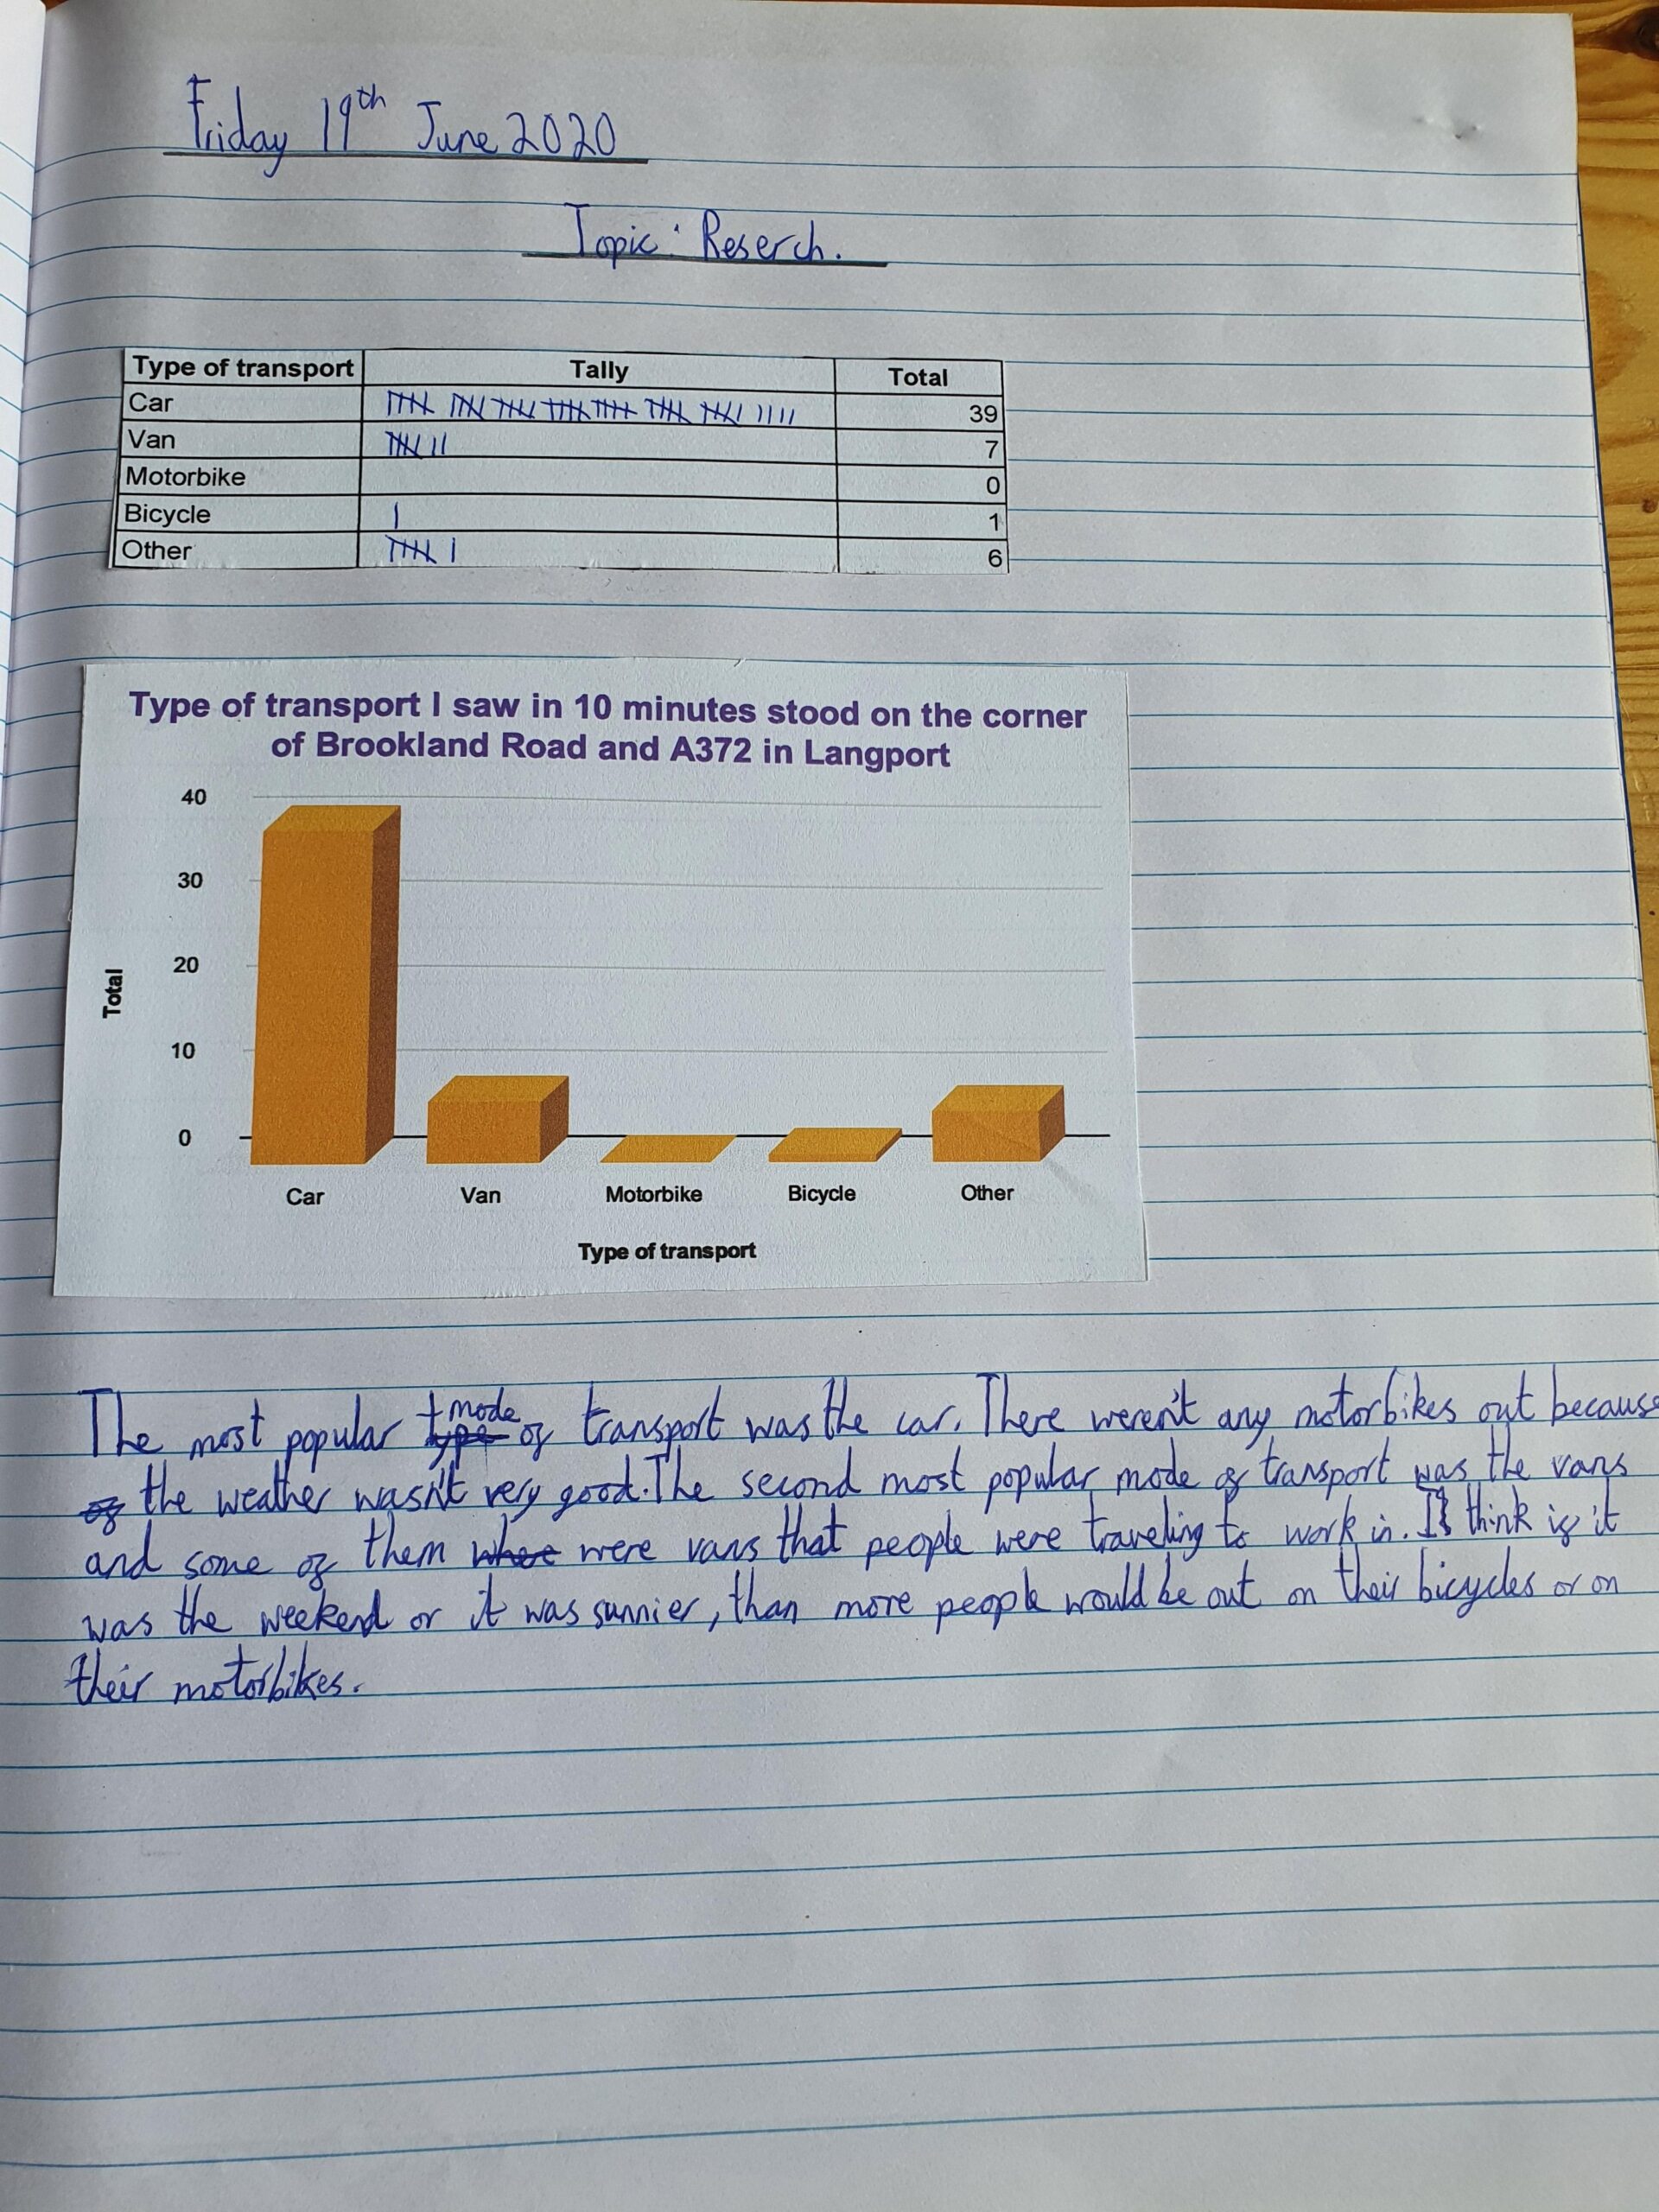 Friday 19th June 2020
Topic: Reserch.
Type of transport Tally Total
Car 39
Van 7
Motorbike 0
Bicycle 1
Other 6
Type of transport I saw in 10 minutes stood on the corner
of Brookland Road and A372 in Langport
40
30
20
10
0
Total
Car Van Motorbike Bicycle Other
Type of transport
The most popular type mode of transport was the car. There weren't any motorbikes out because
of the weather wasn't very good. The second most popular mode of transport was the vans
and some of them where were vans that people were traveling to work in. I think if it
was the weekend or it was sunnier, than more people would be out on their bicycles or on
their motorbikes.